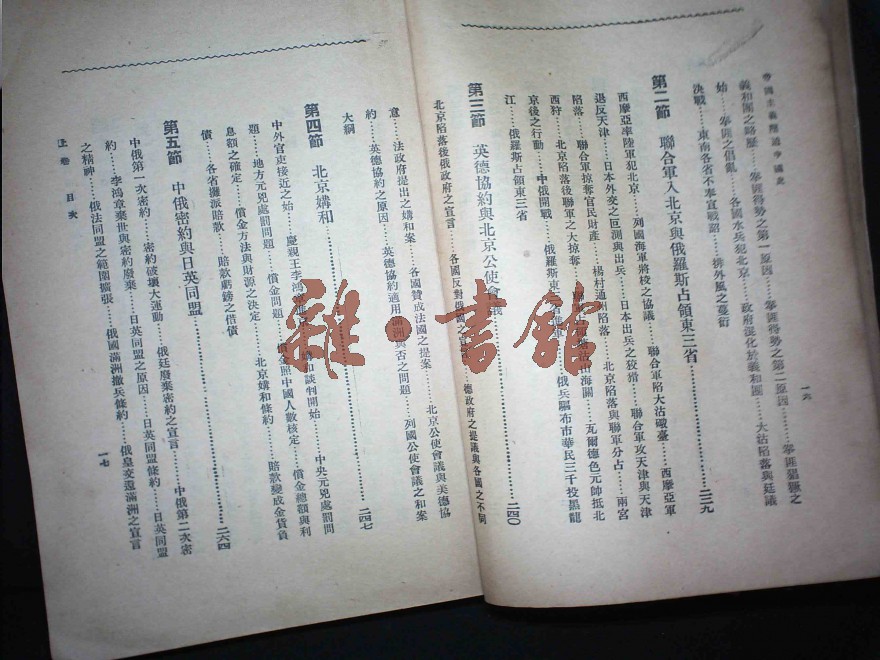 帝國主義壓迫中國史
一六
義和團之略歷……拳匪得勢之第一原因……拳匪得勢之第二原因……拳匪猖獗之
始……拳匪之倡亂……各國水兵犯北京……政府深化於義和團……大沽陷落與廷議
決戰……東南各省不奉宣戰詔……排外風之蔓衍
第二節 聯合軍入北京與俄羅斯占領東三省……二二九
西摩亞率陸軍犯北京……列國海軍將校之協議……聯合軍陷大沽礮臺……西摩亞軍
退反天津……日本外交之叵測與出兵……日本出兵之狡猾……聯合軍攻天津與天津
陷落……聯合軍掠奪官民財產……楊村通州陷落……北京陷落與聯軍分占……兩宮
西狩……北京陷落後聯軍之大掠奪……山海關……瓦爾德色元帥抵北
京後之行動……中俄開戰……俄羅斯東……俄兵驅布市華民三千投黑龍
江……俄羅斯占領東三省
第三節 英德協約與北京公使會議……二四〇
北京陷落後俄政府之宣言……各國反對俄國之宣言……德政府之提議與各國之不同
意……法政府提出之媾和案……各國贊成法國之提案……北京公使會議與英德協
約……英德協約之原因……英德協約適用滿洲與否之問題……列國公使會議之和案
大綱……二四七
第四節 北京媾和
中外官吏接近之始……慶親王李鴻章……媾和談判開始……中央元兇處罰問
題……地方元兇處罰問題……償金問題……償金照中國人數核定……償金總額與利
息額之確定……償金方法與財源之決定……北京媾和條約……賠款變成金貨負
債……各省攤派賠款……賠款虧鎊之借債……二六四
第五節 中俄密約與日英同盟
中俄第一次密約……密約破壞大運動……俄廷廢棄密約之宣言……中俄第二次密
約……李鴻章棄世與密約廢棄……日英同盟之原因……日英同盟條約……日英同盟
之精神……俄法同盟之範圍擴張……俄國滿洲撤兵條約……俄皇交還滿洲之宣言
上卷 目次
一七
雜·書館